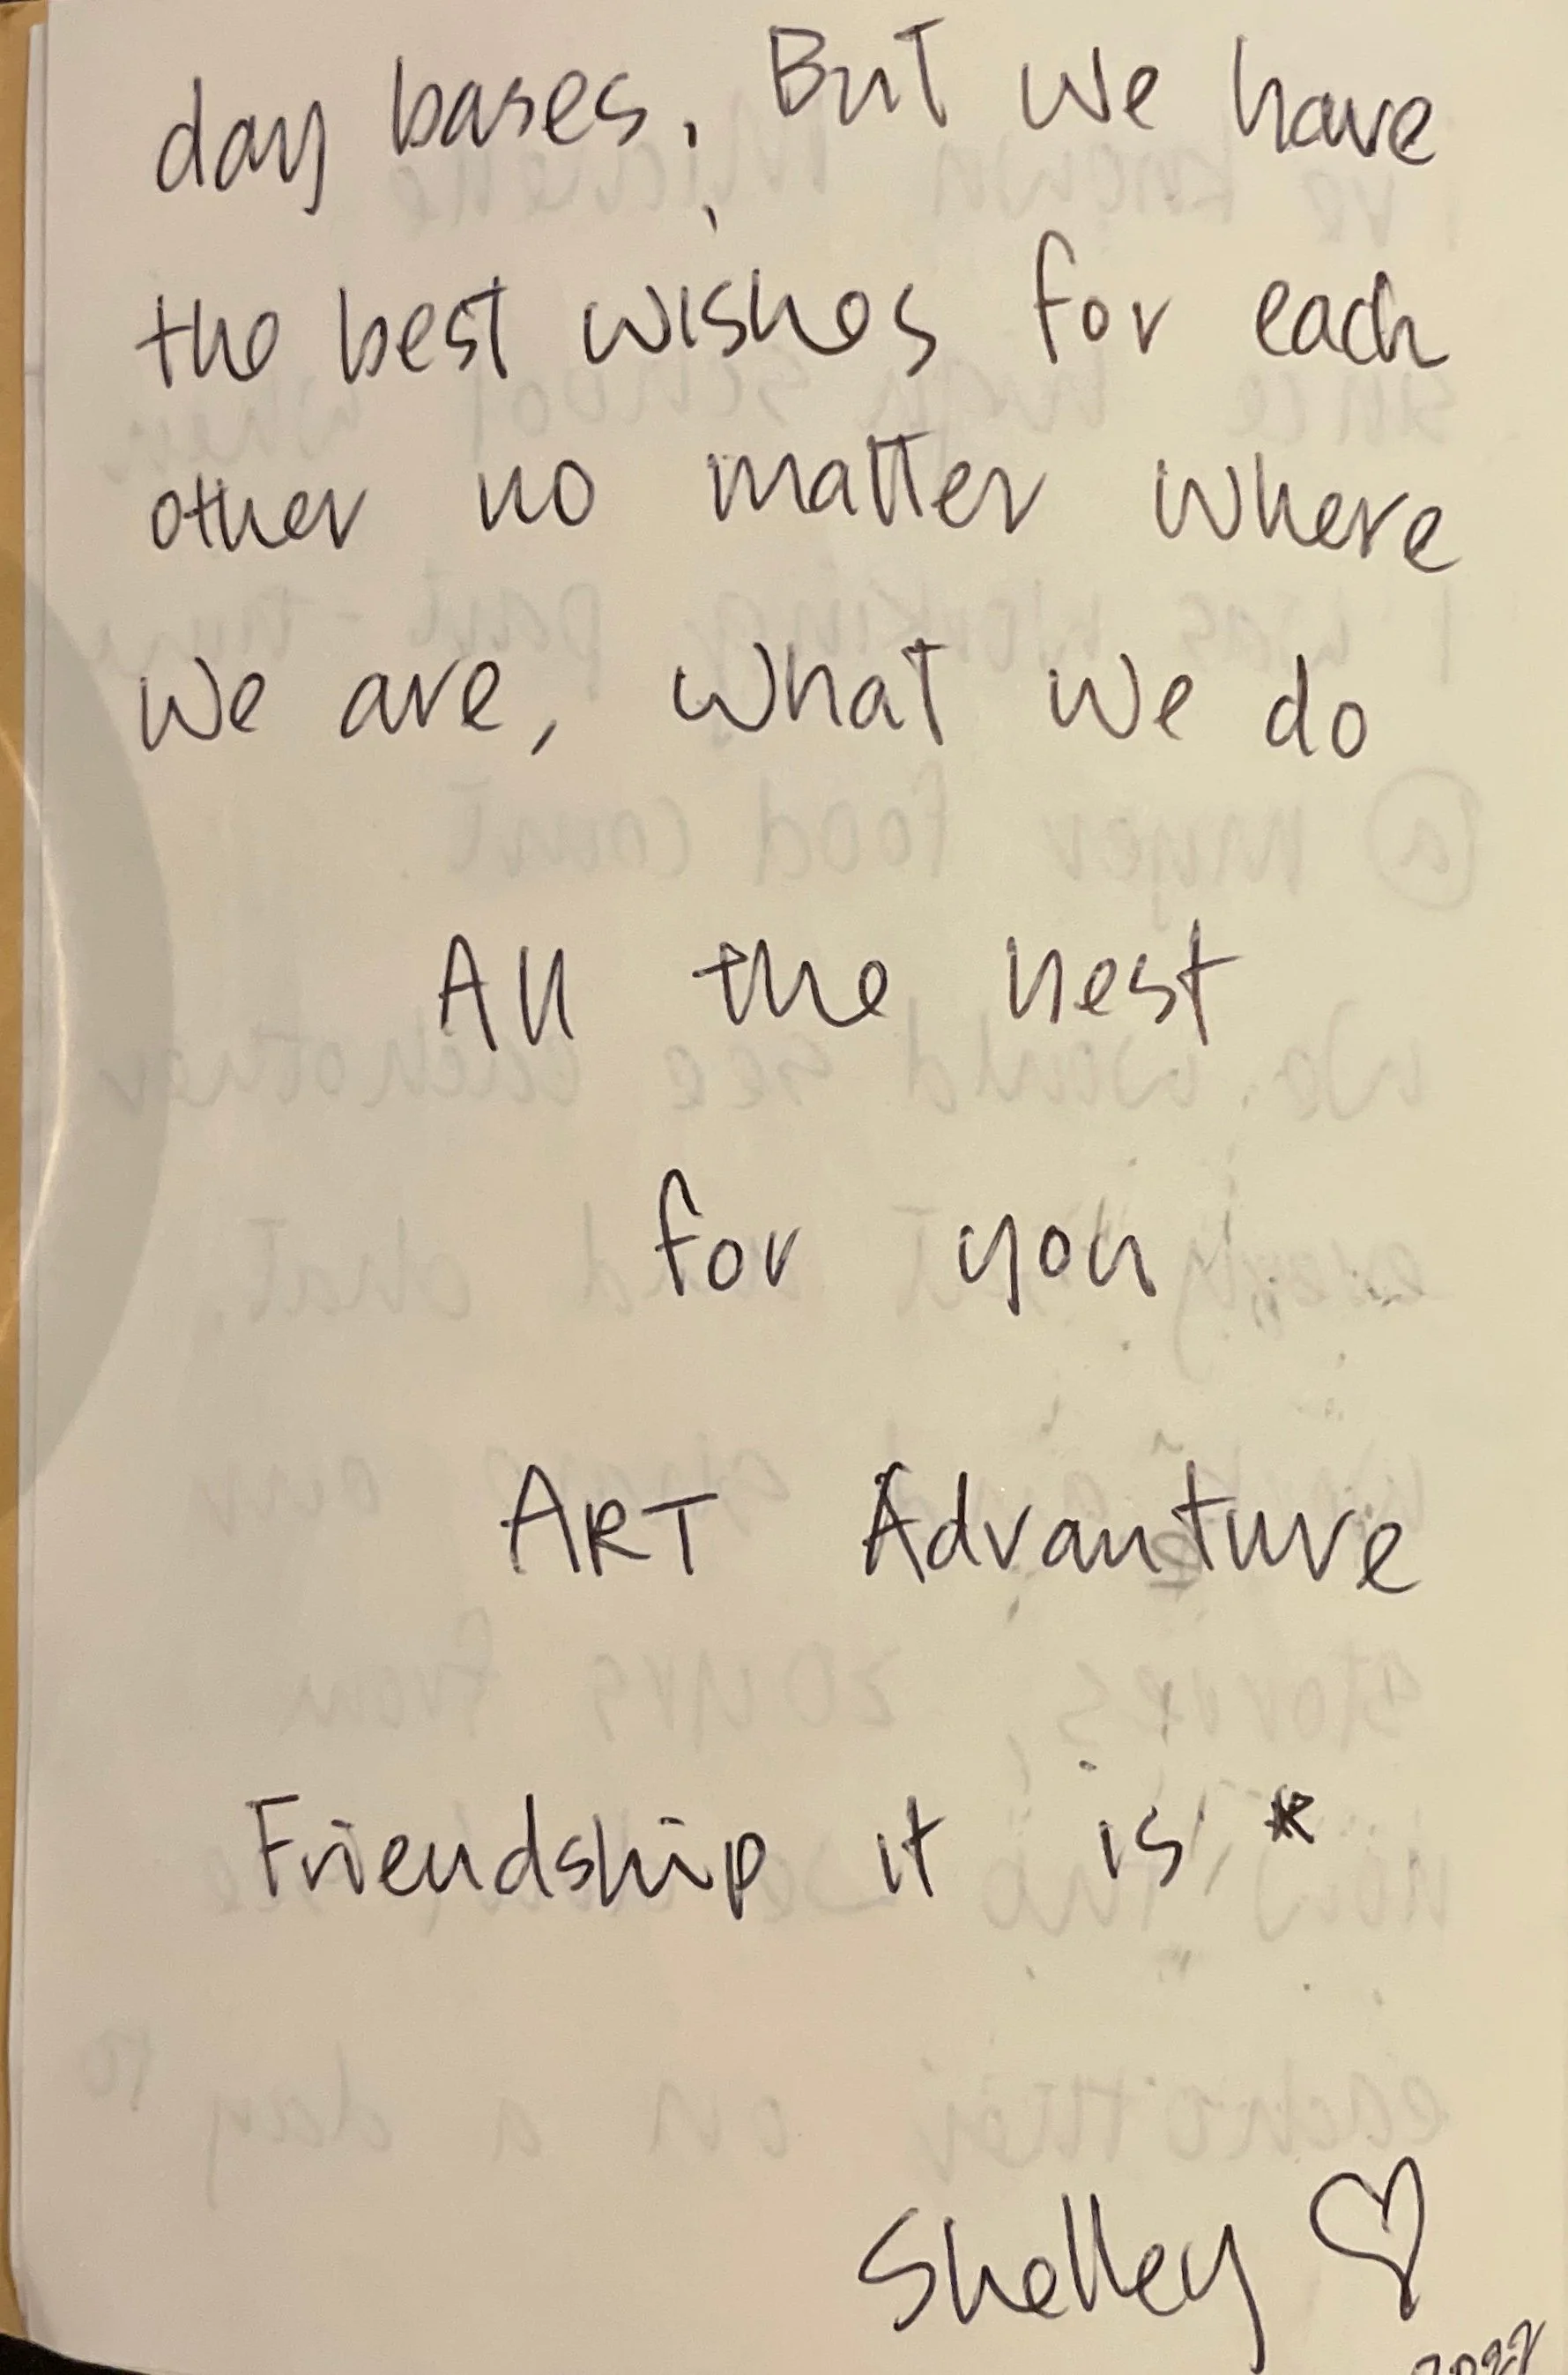 day bases. But we have
the best wishes for each
other no matter where
we are, what we do
All the nest
for you
ART Advanture
e
Friendship it is *
Shelley ♡